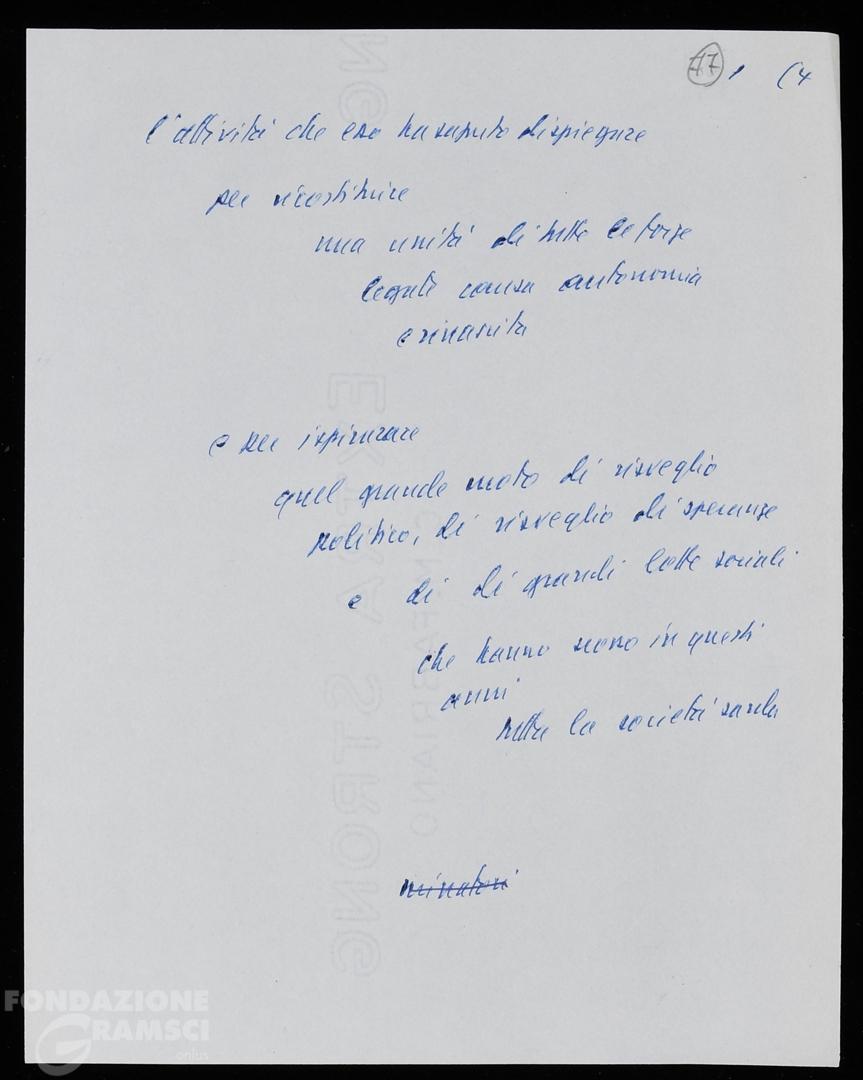 47 1 (4
l'attività che esso ha saputo dispiegare
per ricostituire
una unità di tutte le forze
legate causa autonomia
e rinascita
e per ispirare
quel grande moto di risveglio
politico, di risveglio di speranze
e di di grandi lotte sociali
che hanno scosso in questi
anni
tutta la società sarda
minatori
EXTRA STRONG
FABRIANO
FONDAZIONE
GRAMSCI
onlus